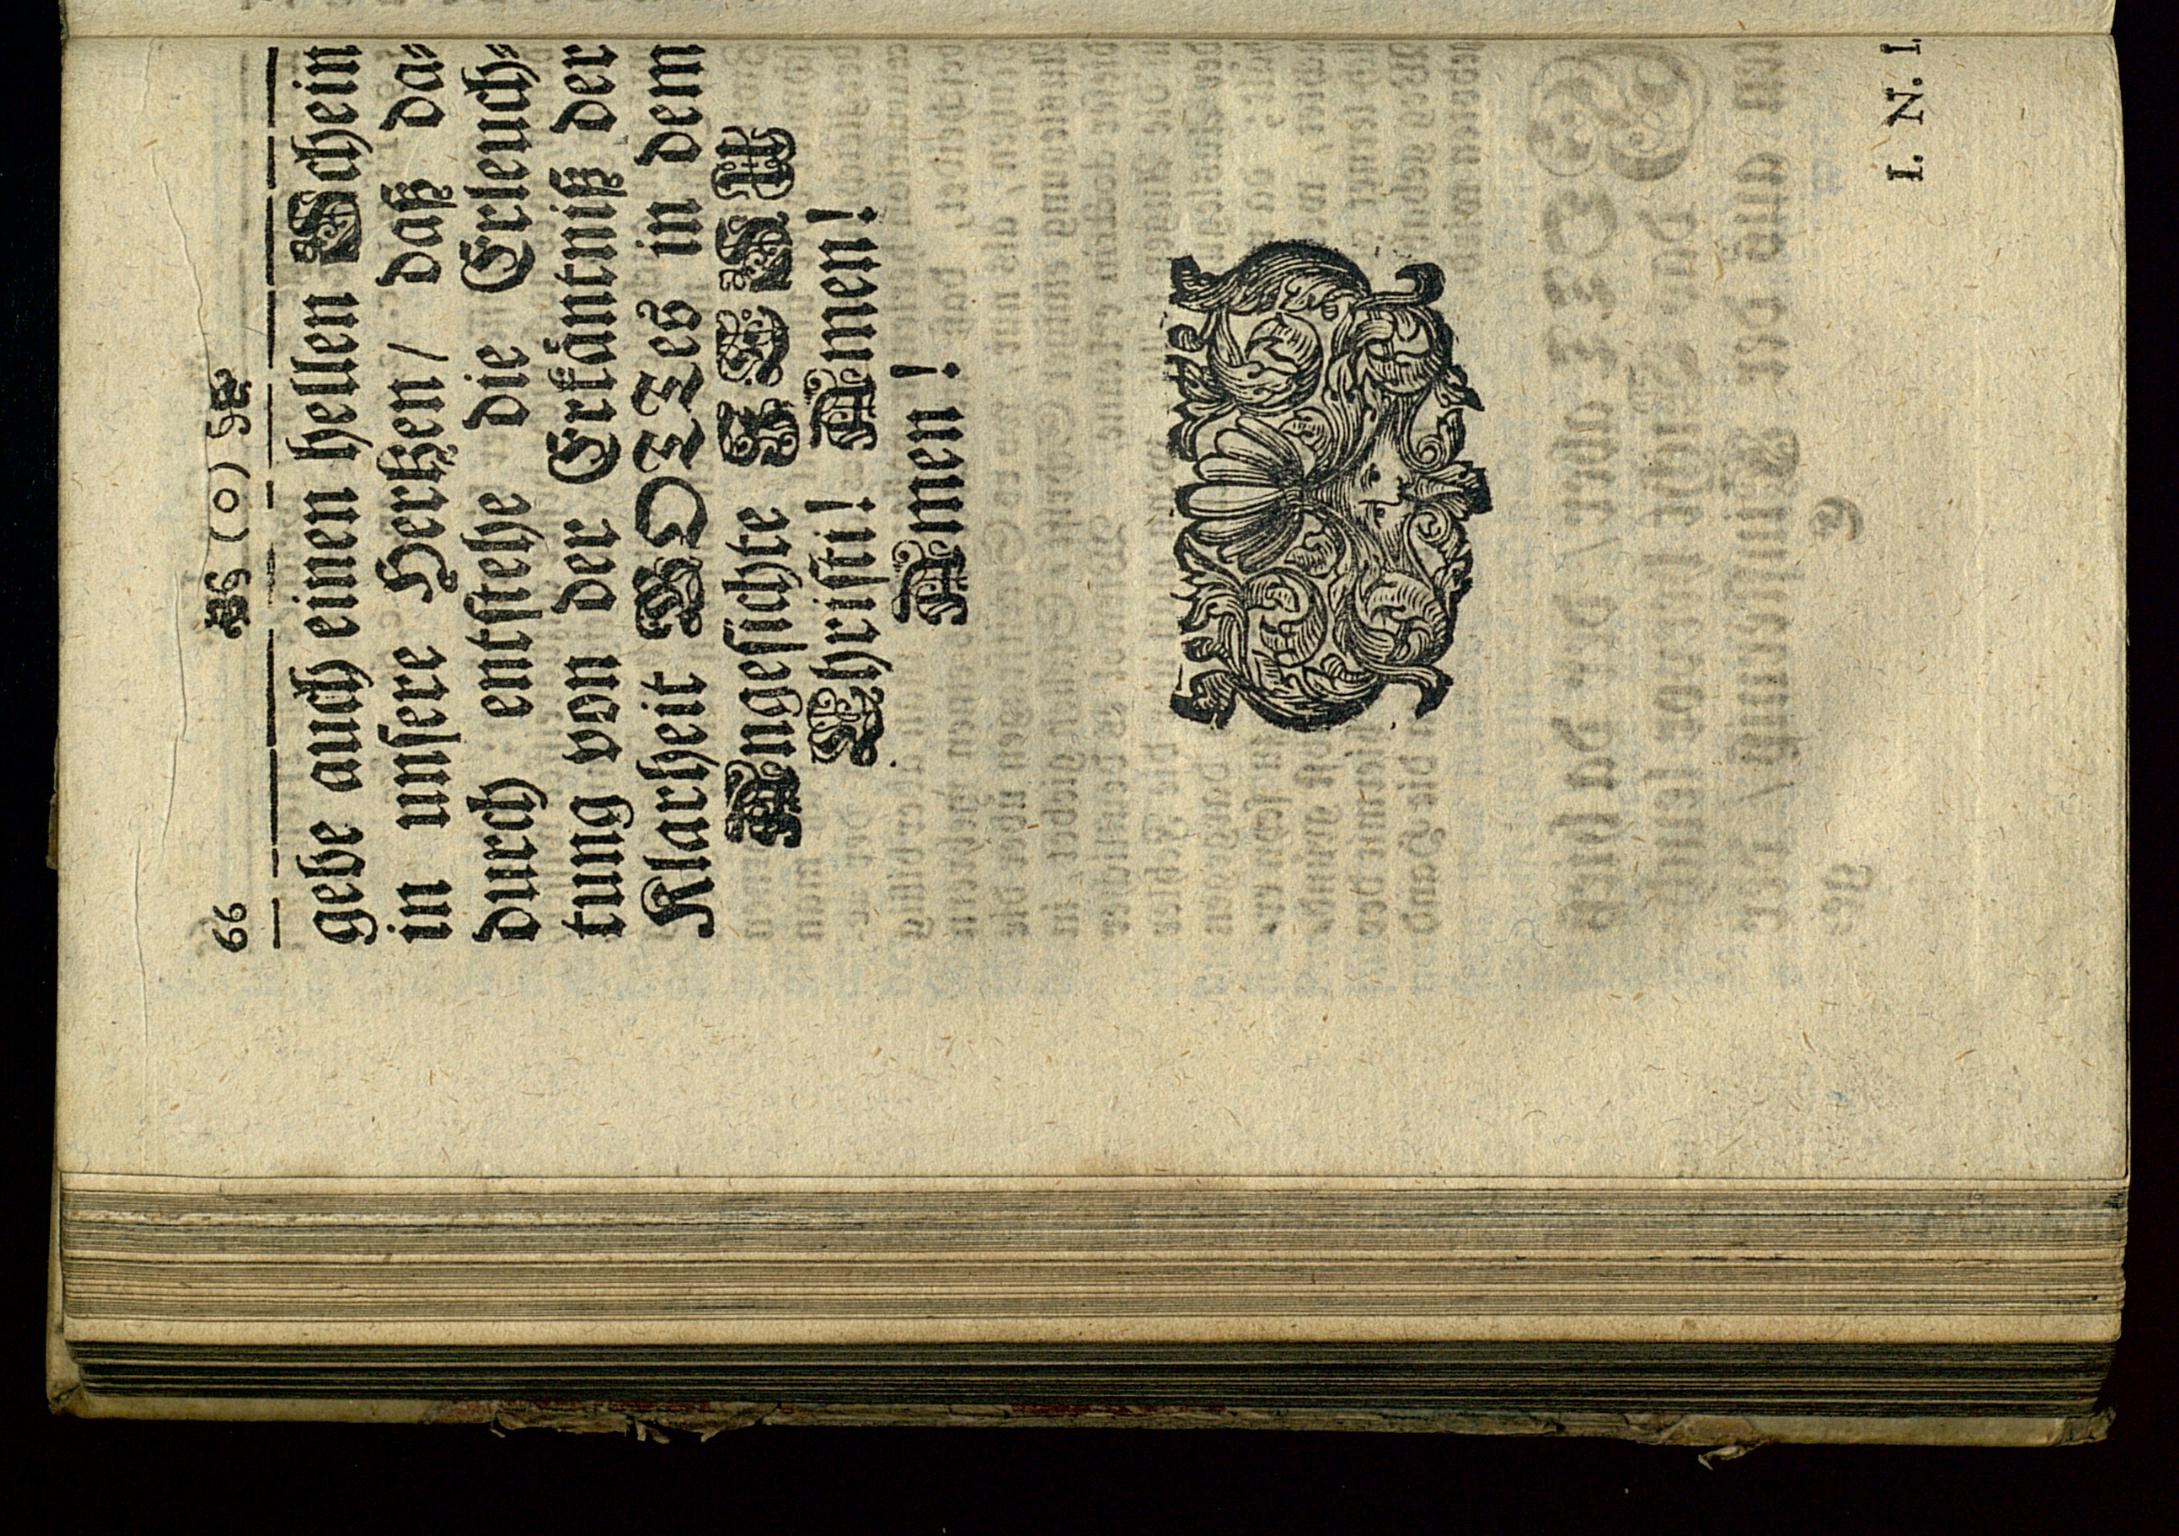 66 (o)
gebe auch einen hellen Schein
in unsere Hertzen/ daß da-
durch entstehe die Erleuch-
tung von der Erkäntniß der
Klarheit GOTTes in dem
Angesichte JESU
Christi! Amen!
Amen!
I. N. I.